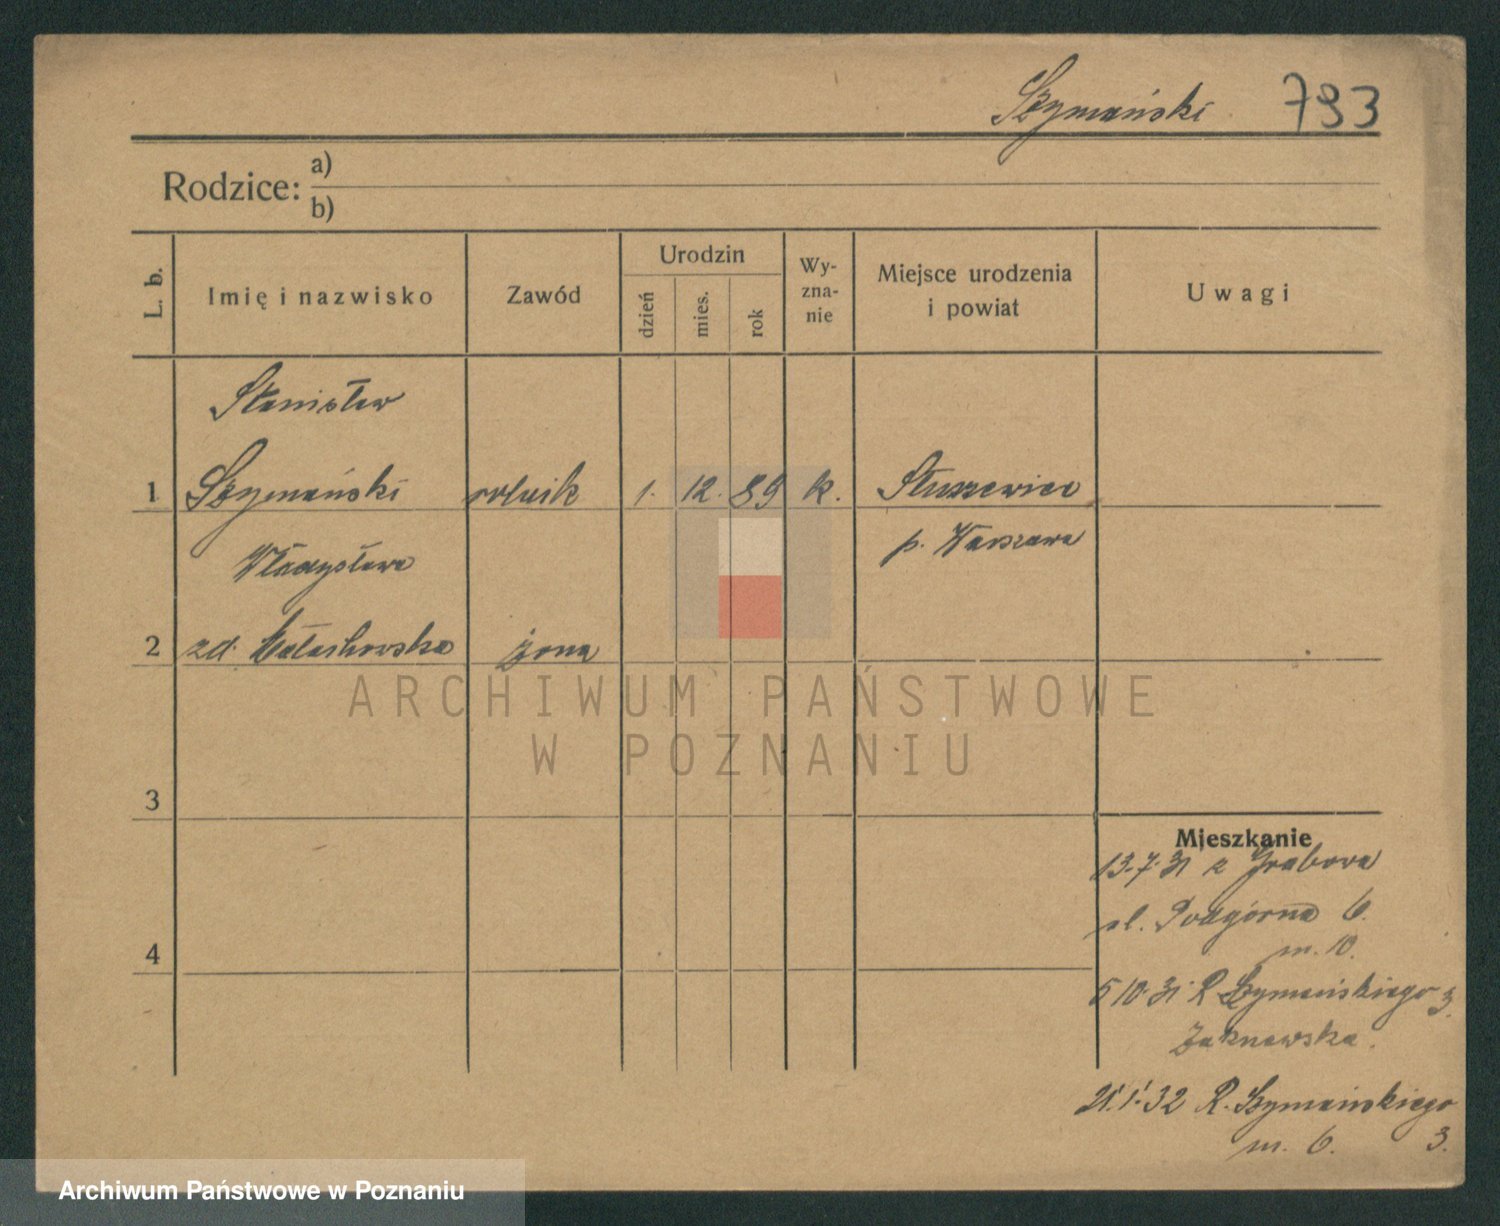 Szymański 793
Rodzice: a)
b)
L. b. Imię i nazwisko Zawód Urodzin dzień mies. rok Wy-zna-nie Miejsce urodzenia i powiat Uwagi
Stanisław
1 Szymański rolnik 1. 12. 89 k.
Władysława p. Warszawa
2 zd. żona
ARCHIWUM PAŃSTWOWE
W POZNANIU
3
Mieszkanie
13.7.31 z Grabowa
ul. Podgórna 6
m. 10.
4
5 10.31 R Szymańskiego 3.
21.1.32 R. Szymańskiego
m. 6. 3.
Archiwum Państwowe w Poznaniu